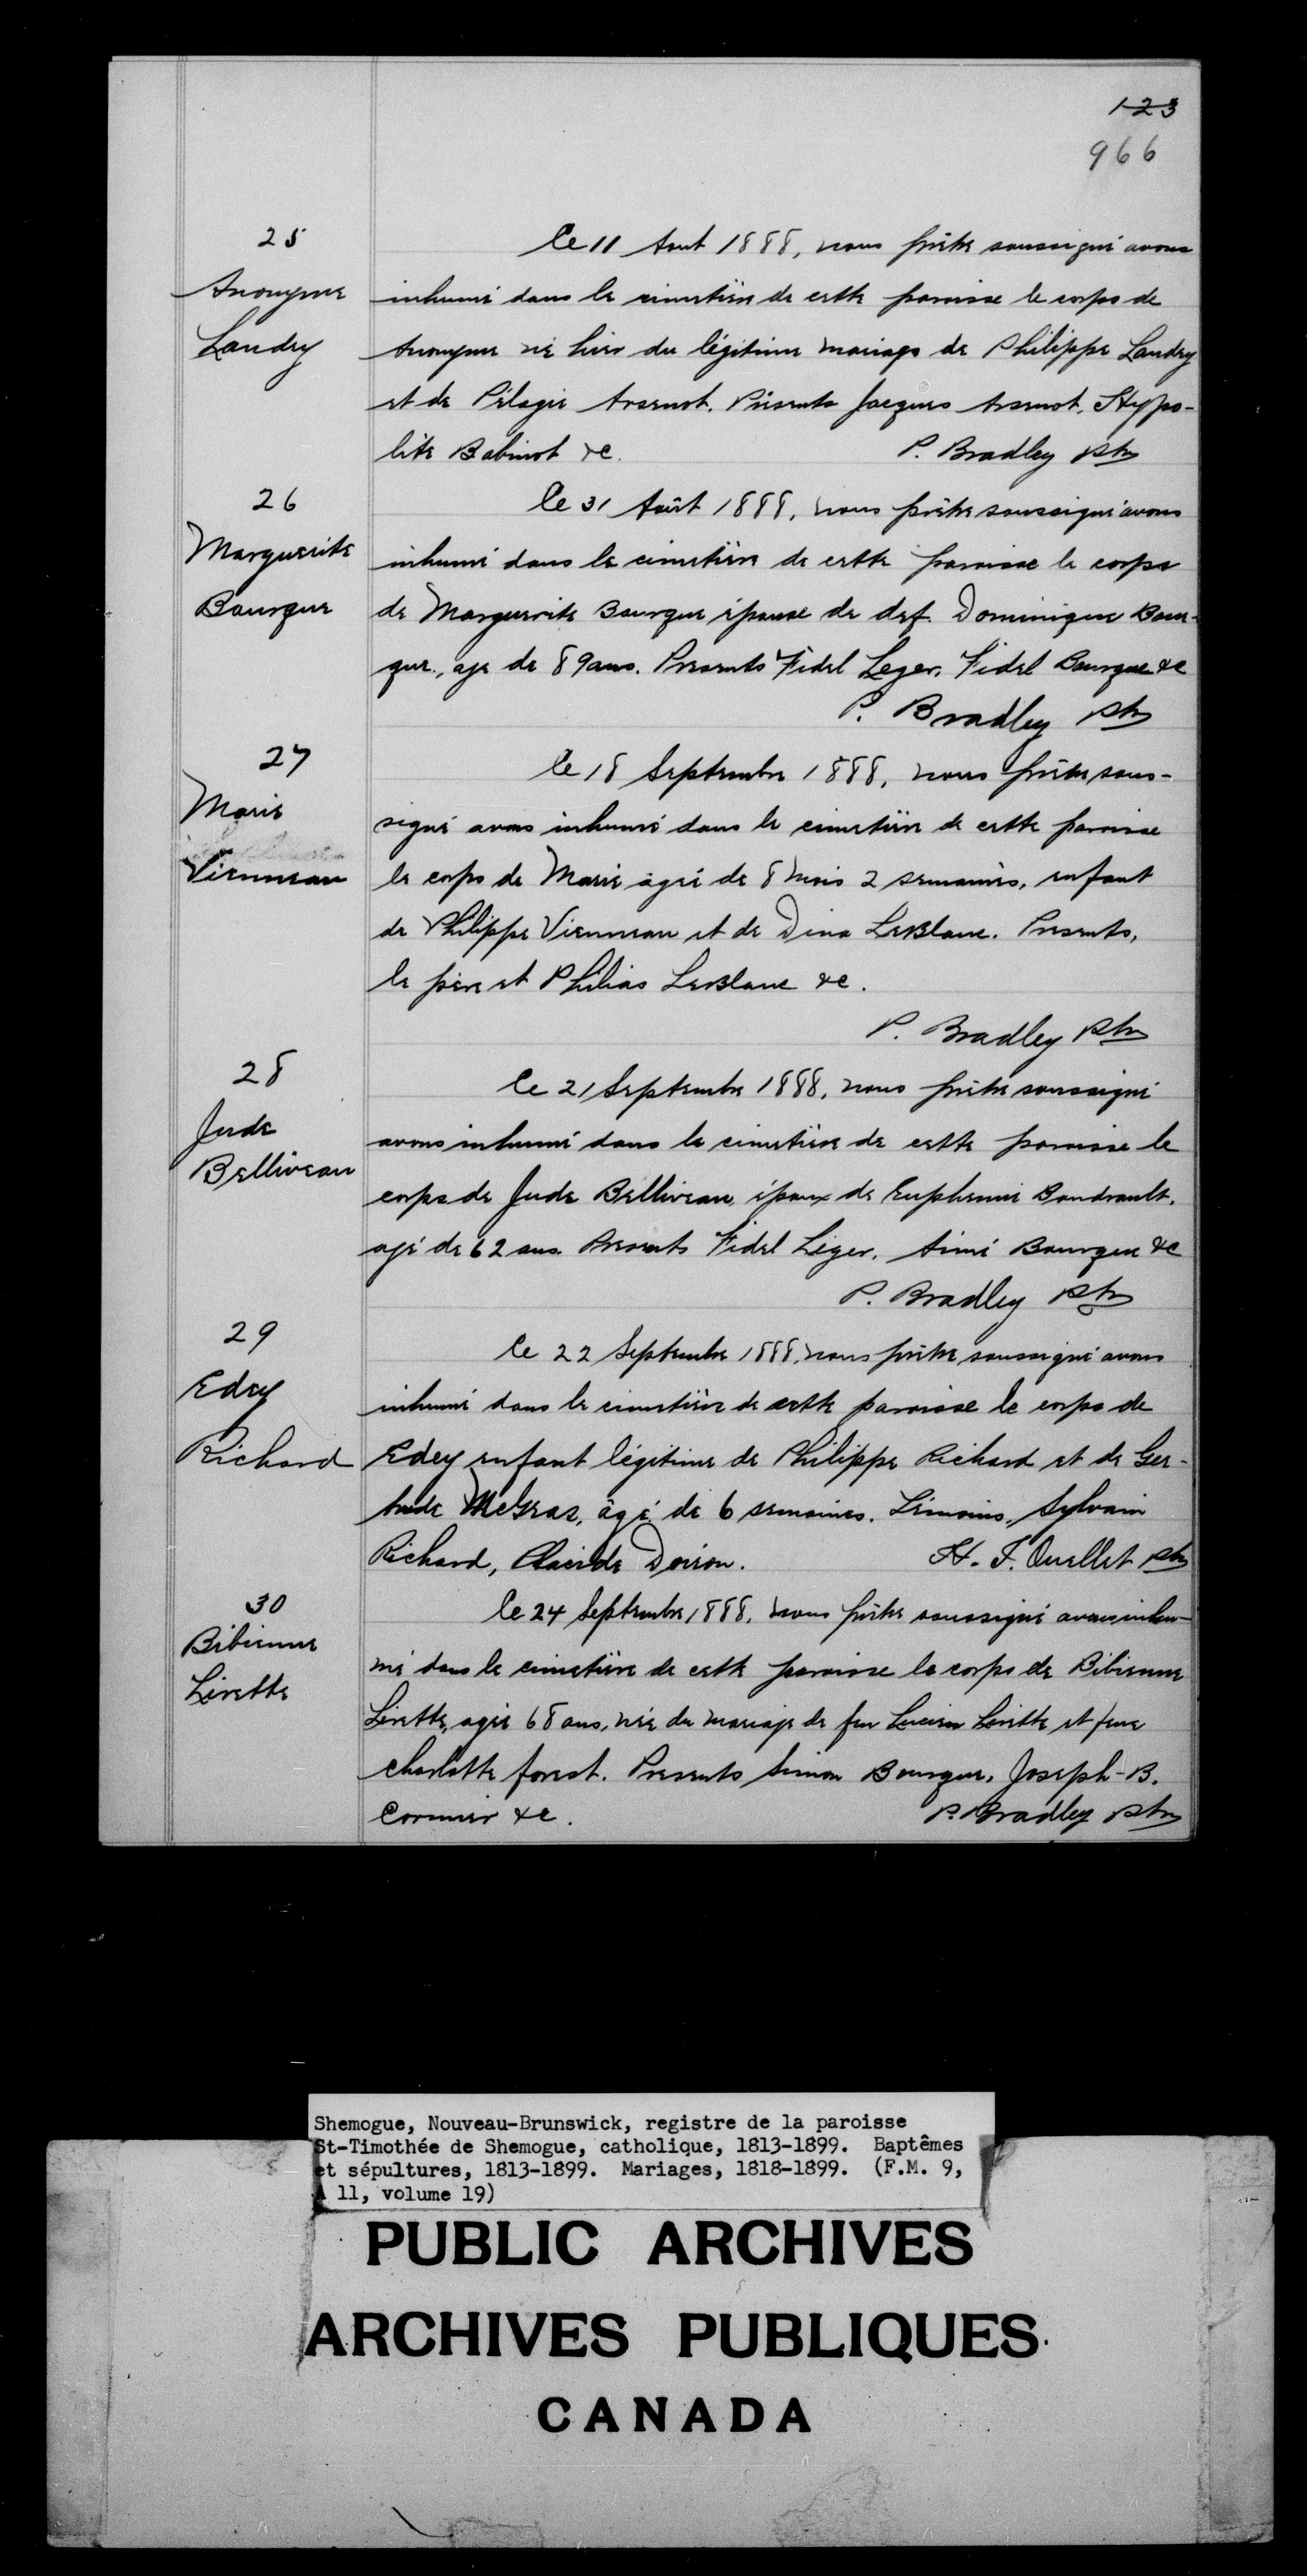 123
966
25
Anonyme
Landry
Le 11 Aout 1888, nous prêtre soussigné avons
inhumé dans le cimetière de cette paroisse le corps de
Anonyme né hier du légitime mariage de Philippe Landry
et de Pélagie Arsenot. Présents Jacques Arsenot, Hypo-
lite Babinot &c. P. Bradley Ptre
26
Marguerite
Bourque
Le 31 Août 1888, nous prêtre soussigné avons
inhumé dans le cimetière de cette paroisse le corps
de Marguerite Bourque épouse de def. Dominique Bour-
que, age de 89 ans. Presents Fidel Leger, Fidel Bourque &c
P. Bradley Ptre
27
Marie
Vienneau
Le 18 Septembre 1888, nous prêtre sous-
signé avons inhumé dans le cimetière de cette paroisse
le corps de Marie âgée de 8 mois 2 semaines, enfant
de Philippe Vienneau et de Dina LeBlanc. Presents,
le père et Philias LeBlanc &c.
P. Bradley Ptre
28
Jude
Belliveau
Le 21 Septembre 1888, nous prêtre soussigné
avons inhumé dans le cimetière de cette paroisse le
corps de Jude Belliveau, époux de Euphemie Boudrault,
agé de 62 ans. Presents Fidel Léger, Aimé Bourque &c
P. Bradley Ptre
29
Edey
Richard
Le 22 Septembre 1888, nous prêtre soussigné avons
inhumé dans le cimetière de cette paroisse le corps de
Edey enfant légitime de Philippe Richard et de Ger-
trude McGraz, âgé de 6 semaines. Témoins, Sylvain
Richard, Placide Doiron. H. J. Ouellet Ptre
30
Bibienne
Lirette
Le 24 Septembre 1888, nous prêtre soussigné avons inhu-
mé dans le cimetière de cette paroisse le corps de Bibienne
Lirette, agée 68 ans, née du mariage de feu Lucien Lirette et feue
Charlotte forest. Presents Simon Bourque, Joseph-B.
Cormier &c. P. Bradley Ptre
Shemogue, Nouveau-Brunswick, registre de la paroisse
St-Timothée de Shemogue, catholique, 1813-1899. Baptêmes
et sépultures, 1813-1899. Mariages, 1818-1899. (F.M. 9,
A 11, volume 19)
PUBLIC ARCHIVES
ARCHIVES PUBLIQUES
CANADA